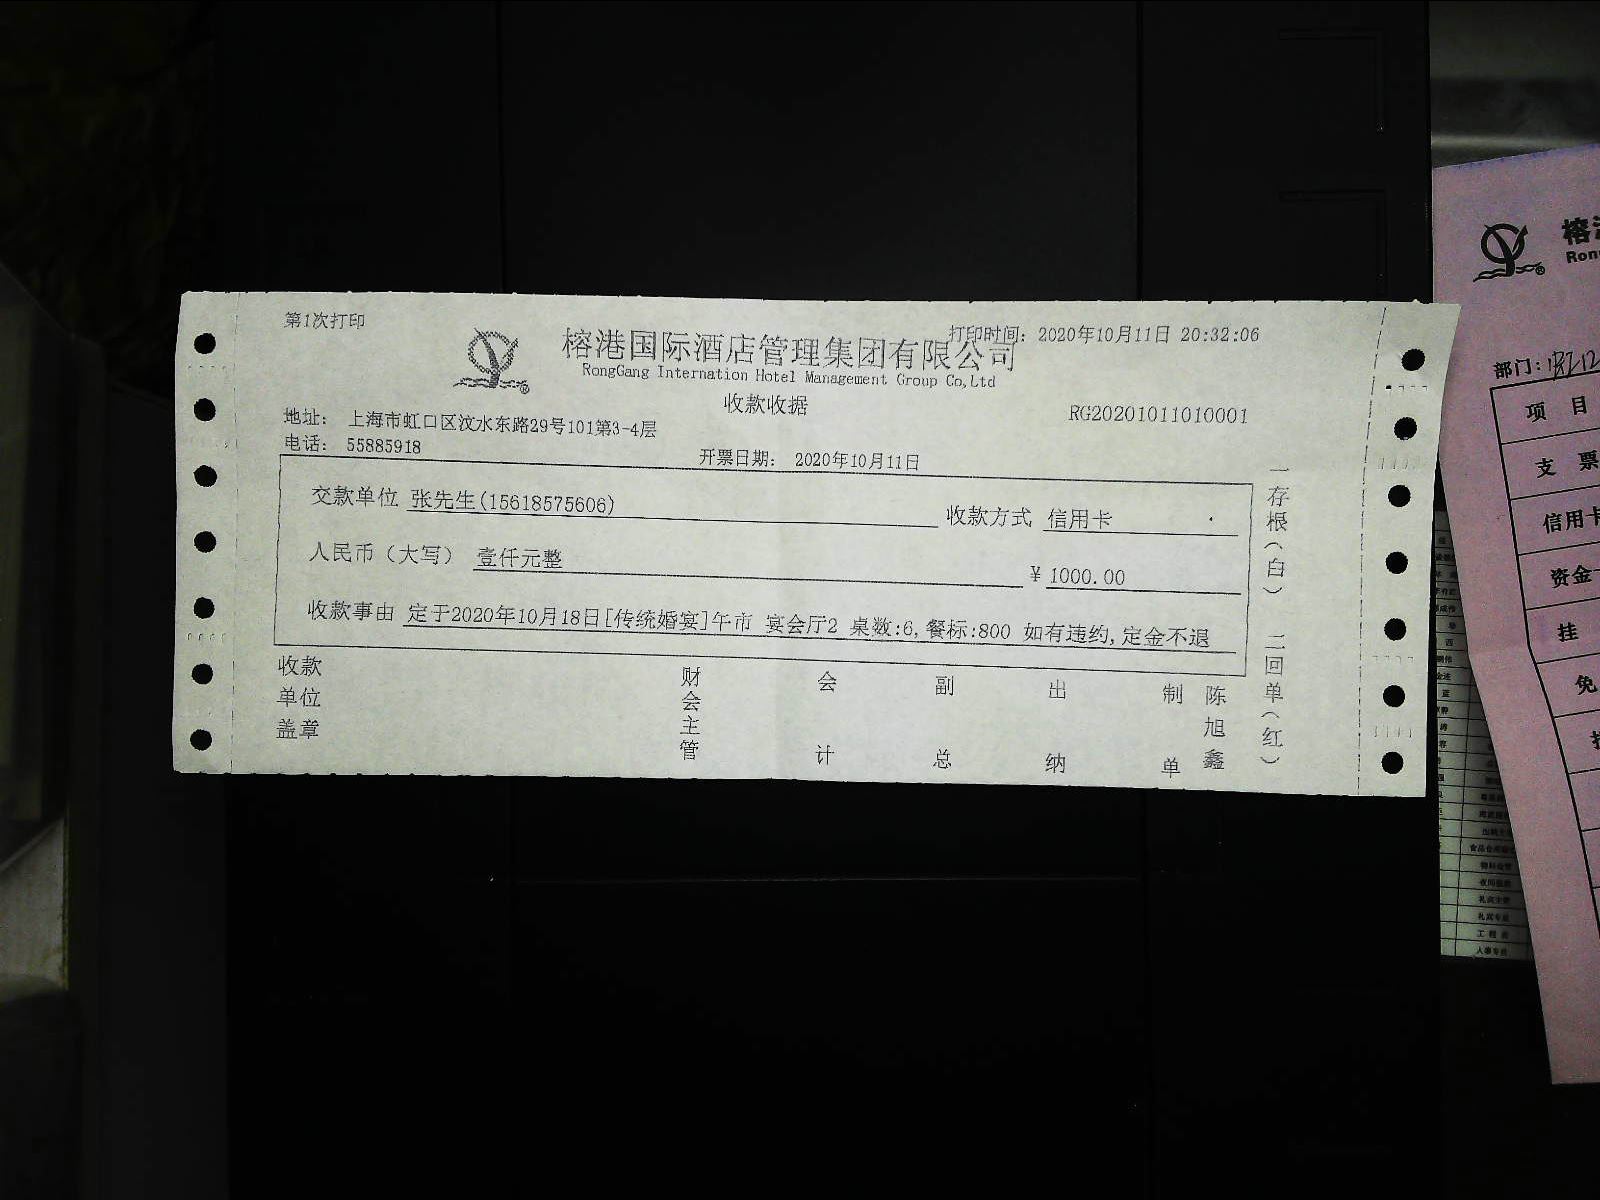 第1次打印
打印时间: 2020年10月11日 20:32:06
榕港国际酒店管理集团有限公司
RongGang Internation Hotel Management Group Co,Ltd
收款收据
RG20201011010001
地址: 上海市虹口区汶水东路29号101第3-4层
电话: 55885918
开票日期: 2020年10月11日
交款单位 张先生(15618575606) 收款方式 信用卡
人民币（大写） 壹仟元整 ¥ 1000.00
收款事由 定于2020年10月18日[传统婚宴]午市 宴会厅2 桌数:6,餐标:800 如有违约,定金不退
一存根(白) 二回单(红)
收款单位盖章
财会主管
会计
副总
出纳
制单
陈旭鑫
榕
Ron
部门:
项 目
支 票
信用卡
资金
挂
免
礼宾主管
礼宾专员
工程员
人事专员